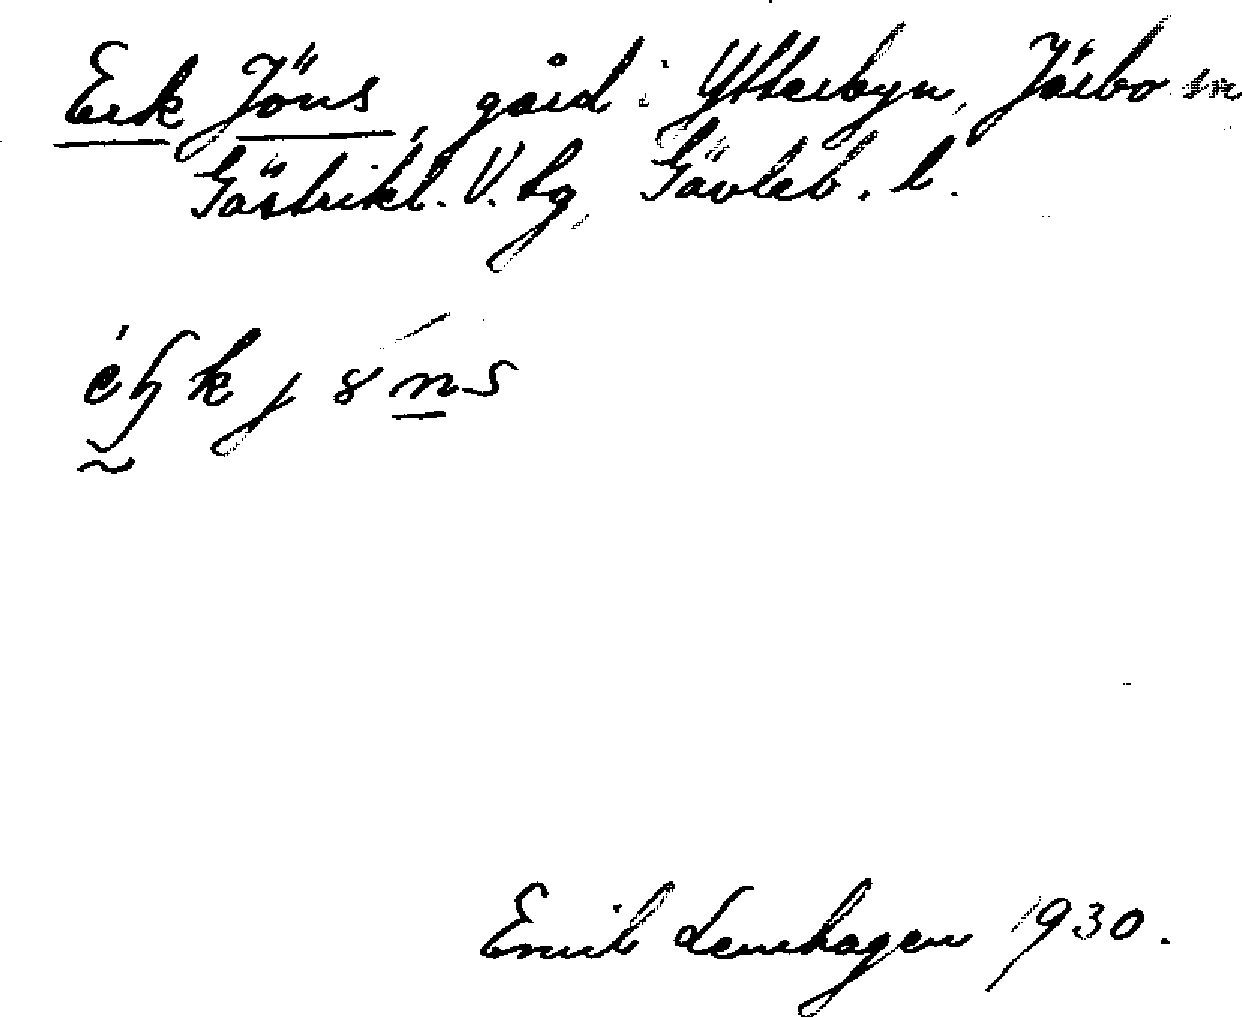 Erk Jöns, gård i Ytterbyn, Järbo sn
Gästrikl. V. tg, Gävleb. l.
Emil Lenhagen 1930.